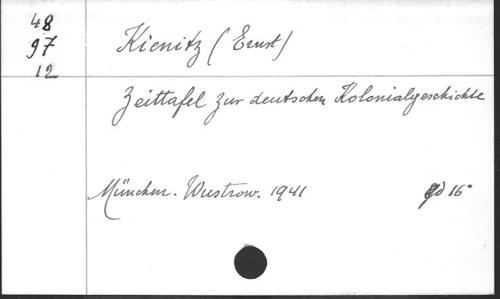 48
97
12
Kienitz (Ernst)
Zeittafel zur deutschen Kolonialgeschichte
München. Wustrow. 1941 gd 16°